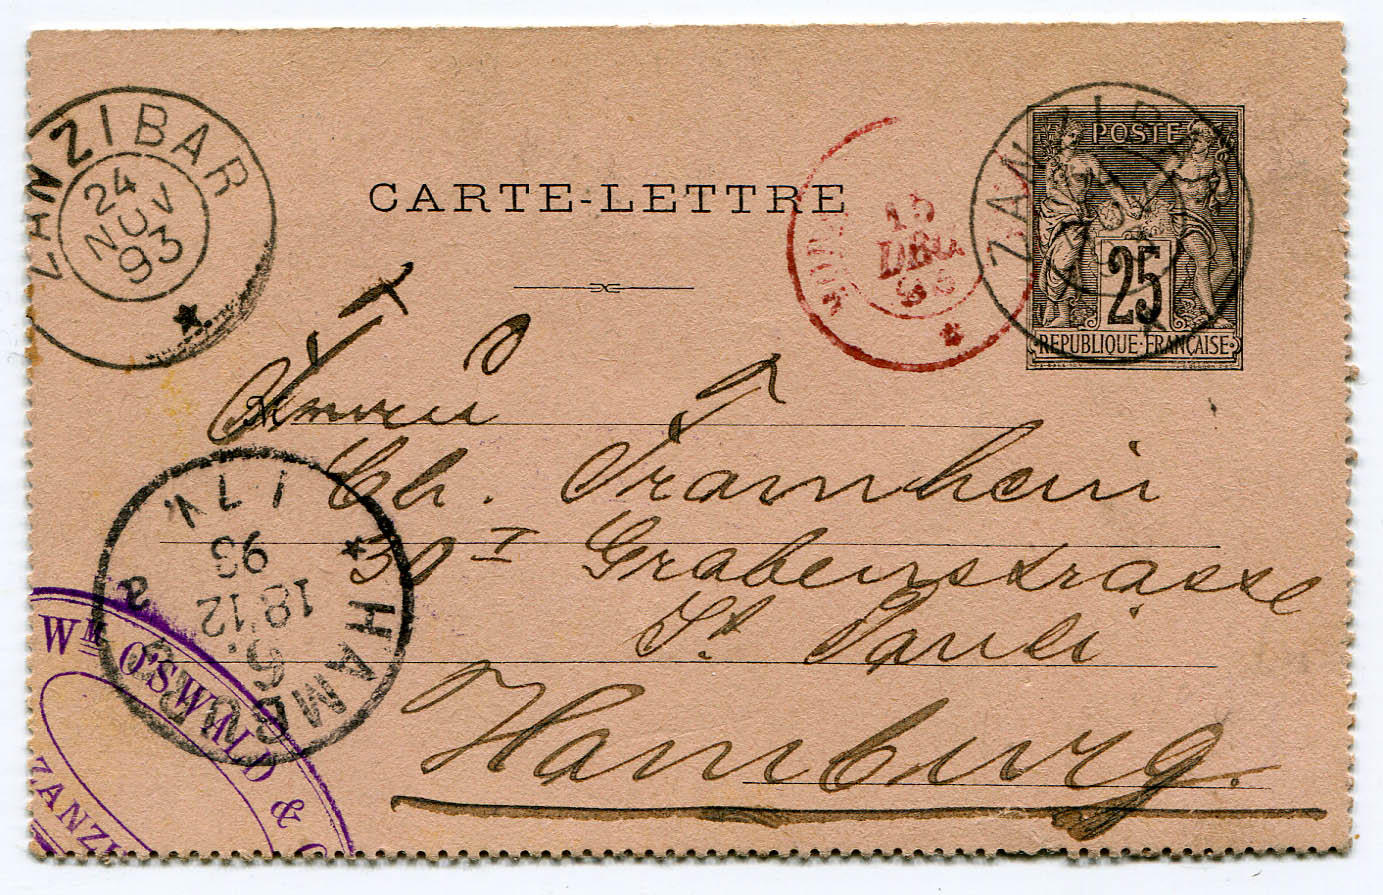 ZANZIBAR
24
NOV
93
CARTE-LETTRE
15
DEC
93
ZANZIBAR
POSTE
25
REPUBLIQUE FRANÇAISE
Ch. Tramheim
30 I Grabenstrasse
St. Pauli
Hamburg.
HAMBURG
6.
18 12
93
Wm O'SWALD & C
ZANZI